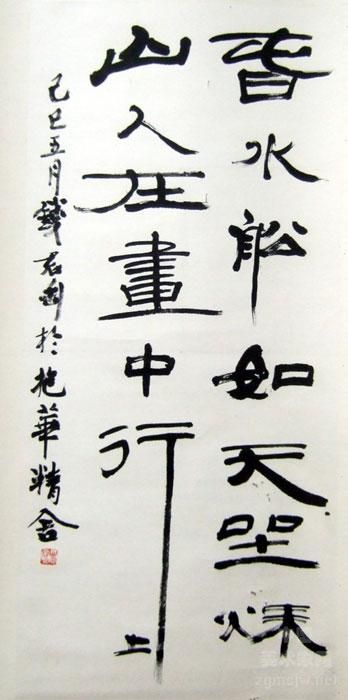 春水舩如天坐秌
山人在畫中行
上
己巳五月錢君匋於抱華精舍